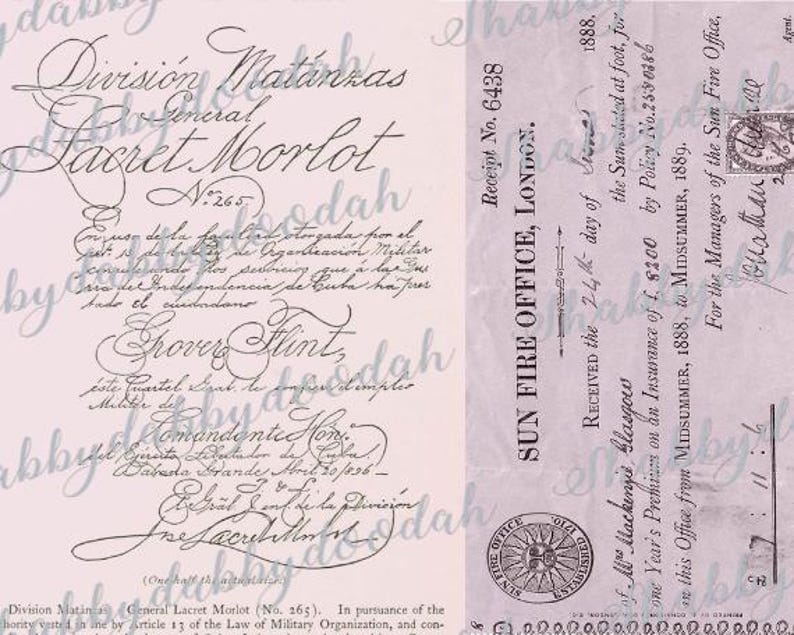 División Matánzas
General
Lacret Morlot
No. 265.
En uso de la facultad otorgada por el
art. 13 de la Ley de Organización Militar
considerando los servicios que á la Gue
rra de Independencia de Cuba ha pres
tado el ciudadano
Grover Flint,
éste Cuartel Gral. le confiere el empleo
Militar de
Comandante Honº.
del Ejército Libertador de Cuba.
Sabada Grande Avril 20/896–
P. y L.
El Gral. J. ent. de la División
José Lacret Morlot
(One half the actual size)
Division Matánzas General Lacret Morlot (No. 265). In pursuance of the
thority vested in me by Article 13 of the Law of Military Organization, and con-
Receipt No. 6438
1888.
SUN FIRE OFFICE, LONDON.
RECEIVED the 24th day of
of Mrs Mackenzie Glasgow the Sum stated at foot, for
one Year's Premium on an Insurance of £ 8200 by Policy No. 2530286
in this Office from MIDSUMMER, 1888, to MIDSUMMER, 1889.
For the Managers of the Sun Fire Office,
Agent.
£ 7 : 11 : 6
SUN FIRE OFFICE
ESTABLISHED 1710.
Shabbydabbydoodah